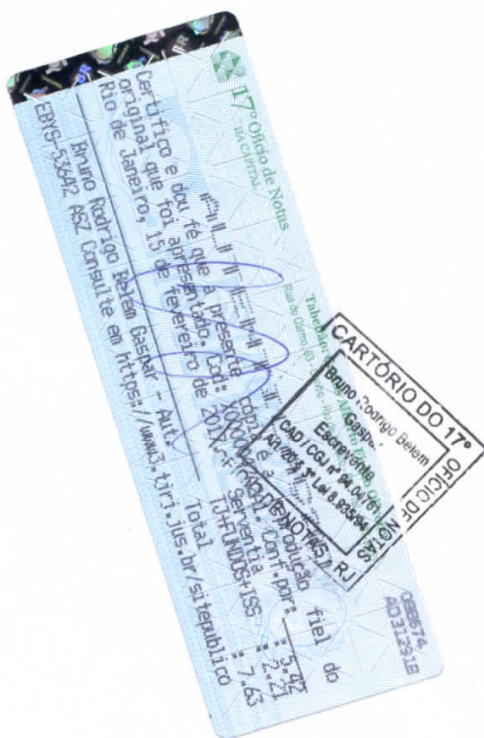 17º Ofício de Notas
DA CAPITAL
Tabelião:
Rua do Carmo, 63
088674
AD312918
Certifico e dou fé que a presente cópia é a reprodução fiel do
original que foi apresentado. Cod: Conf.por:
Rio de Janeiro, 15 de fevereiro de Serventia : 5.42
TJ+FUNDOS+ISS : 2.21
Bruno Rodrigo Belem Gaspar - Aut. Total : 7.63
EBYS-53642 ASZ Consulte em https://www3.tjrj.jus.br/sitepublico
CARTÓRIO DO 17º
OFÍCIO DE NOTAS
DE NOTAS / RJ
Bruno Rodrigo Belem
Gaspar
Escrevente
CAD / CGJ nº
3º Lei 8.935/94